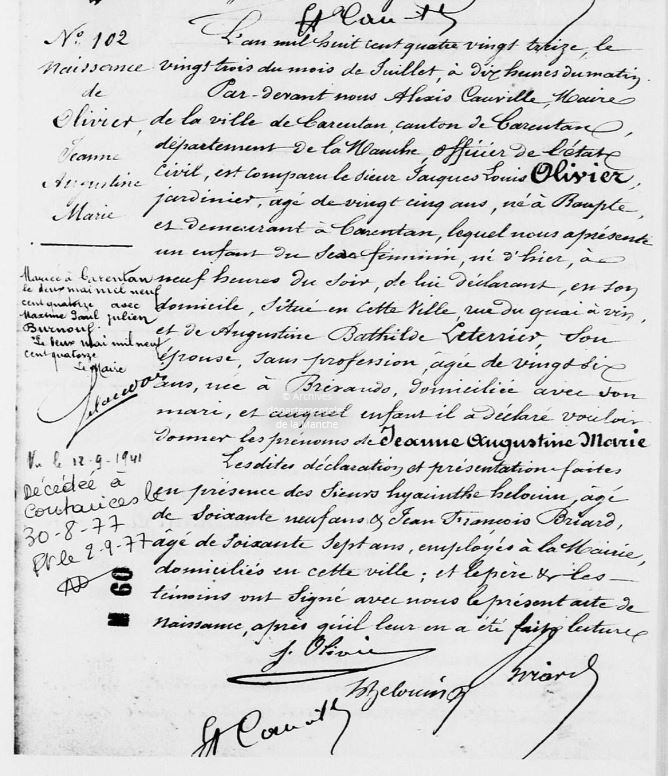 N.º 102
naissance
de
Olivier,
Jeanne
Augustine
Marie
Mariée à Carentan
le deux mai mil neuf
cent quatorze avec
Maxime Paul Julien
Burnouf.
Le deux mai mil neuf
cent quatorze
Le Maire
Vu le 12-9-1941
Décédée à
Coutances le
30-8-77
le 2-9-77
N 60
L'an mil huit cent quatre vingt treize, le
vingt trois du mois de Juillet, à dix heures du matin.
Par-devant nous Alexis Cauville, Maire
de la ville de Carentan, canton de Carentan,
département de la Manche, officier de l'état
civil, est comparu le sieur Jacques Louis Olivier,
jardinier, âgé de vingt cinq ans, né à Baupte,
et demeurant à Carentan, lequel nous a présenté
un enfant du Sexe féminin, né d'hier, à
neuf heures du Soir, de lui déclarant, en son
domicile, situé en cette Ville, rue du quai à vin,
et de Augustine Bathilde Leterrier, Son
épouse, Sans profession, âgée de vingt six
ans, née à Brévands, domiciliée avec Son
mari, et auquel enfant il a déclaré vouloir
donner les prénoms de Jeanne Augustine Marie
Lesdites déclaration et présentation faites
en présence des Sieurs hyacinthe helouin, âgé
de Soixante neuf ans & Jean François Briard,
âgé de Soixante Sept ans, employés à la Mairie,
domiciliés en cette ville ; et le père & les
témoins ont Signé avec nous le présent acte de
naissance, après qu'il leur en a été fait lecture
J. Olivier
Helouin
Briard
© Archives
départementales
de la Manche